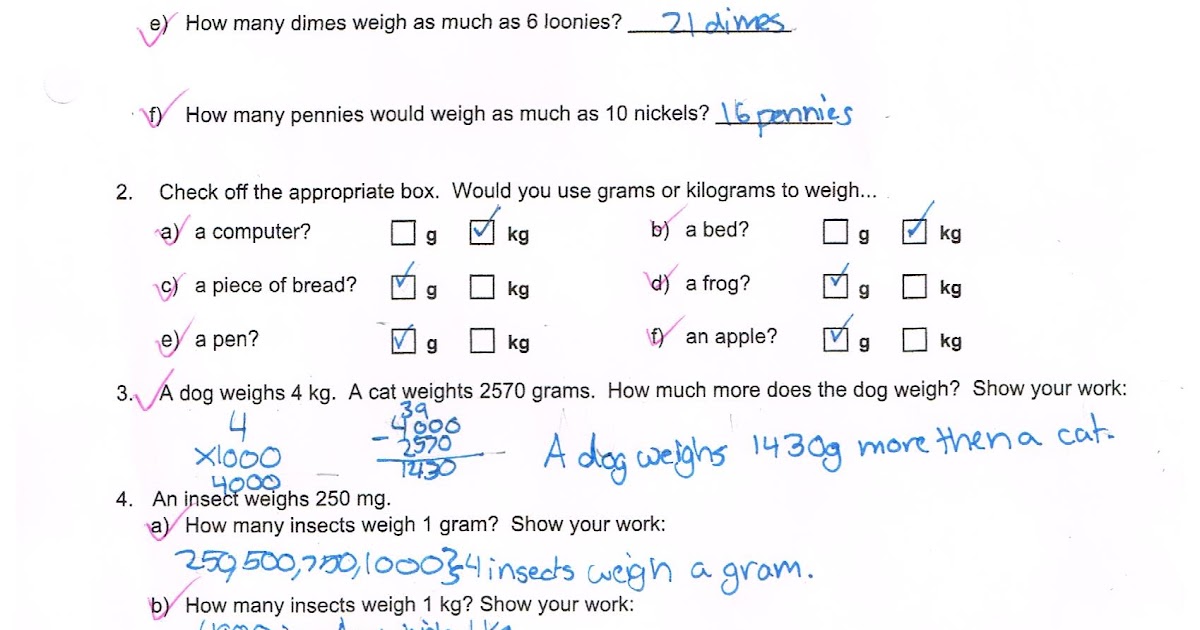 e) How many dimes weigh as much as 6 loonies? 21 dimes
f) How many pennies would weigh as much as 10 nickels? 16 pennies
2. Check off the appropriate box. Would you use grams or kilograms to weigh...
a) a computer? g kg b) a bed? g kg
c) a piece of bread? g kg d) a frog? g kg
e) a pen? g kg f) an apple? g kg
3. A dog weighs 4 kg. A cat weights 2570 grams. How much more does the dog weigh? Show your work:
4 39
x1000 4000
4000 - 2570
1430
A dog weighs 1430g more then a cat.
4. An insect weighs 250 mg.
a) How many insects weigh 1 gram? Show your work:
250, 500, 750, 1000} 4 insects weigh a gram.
b) How many insects weigh 1 kg? Show your work: